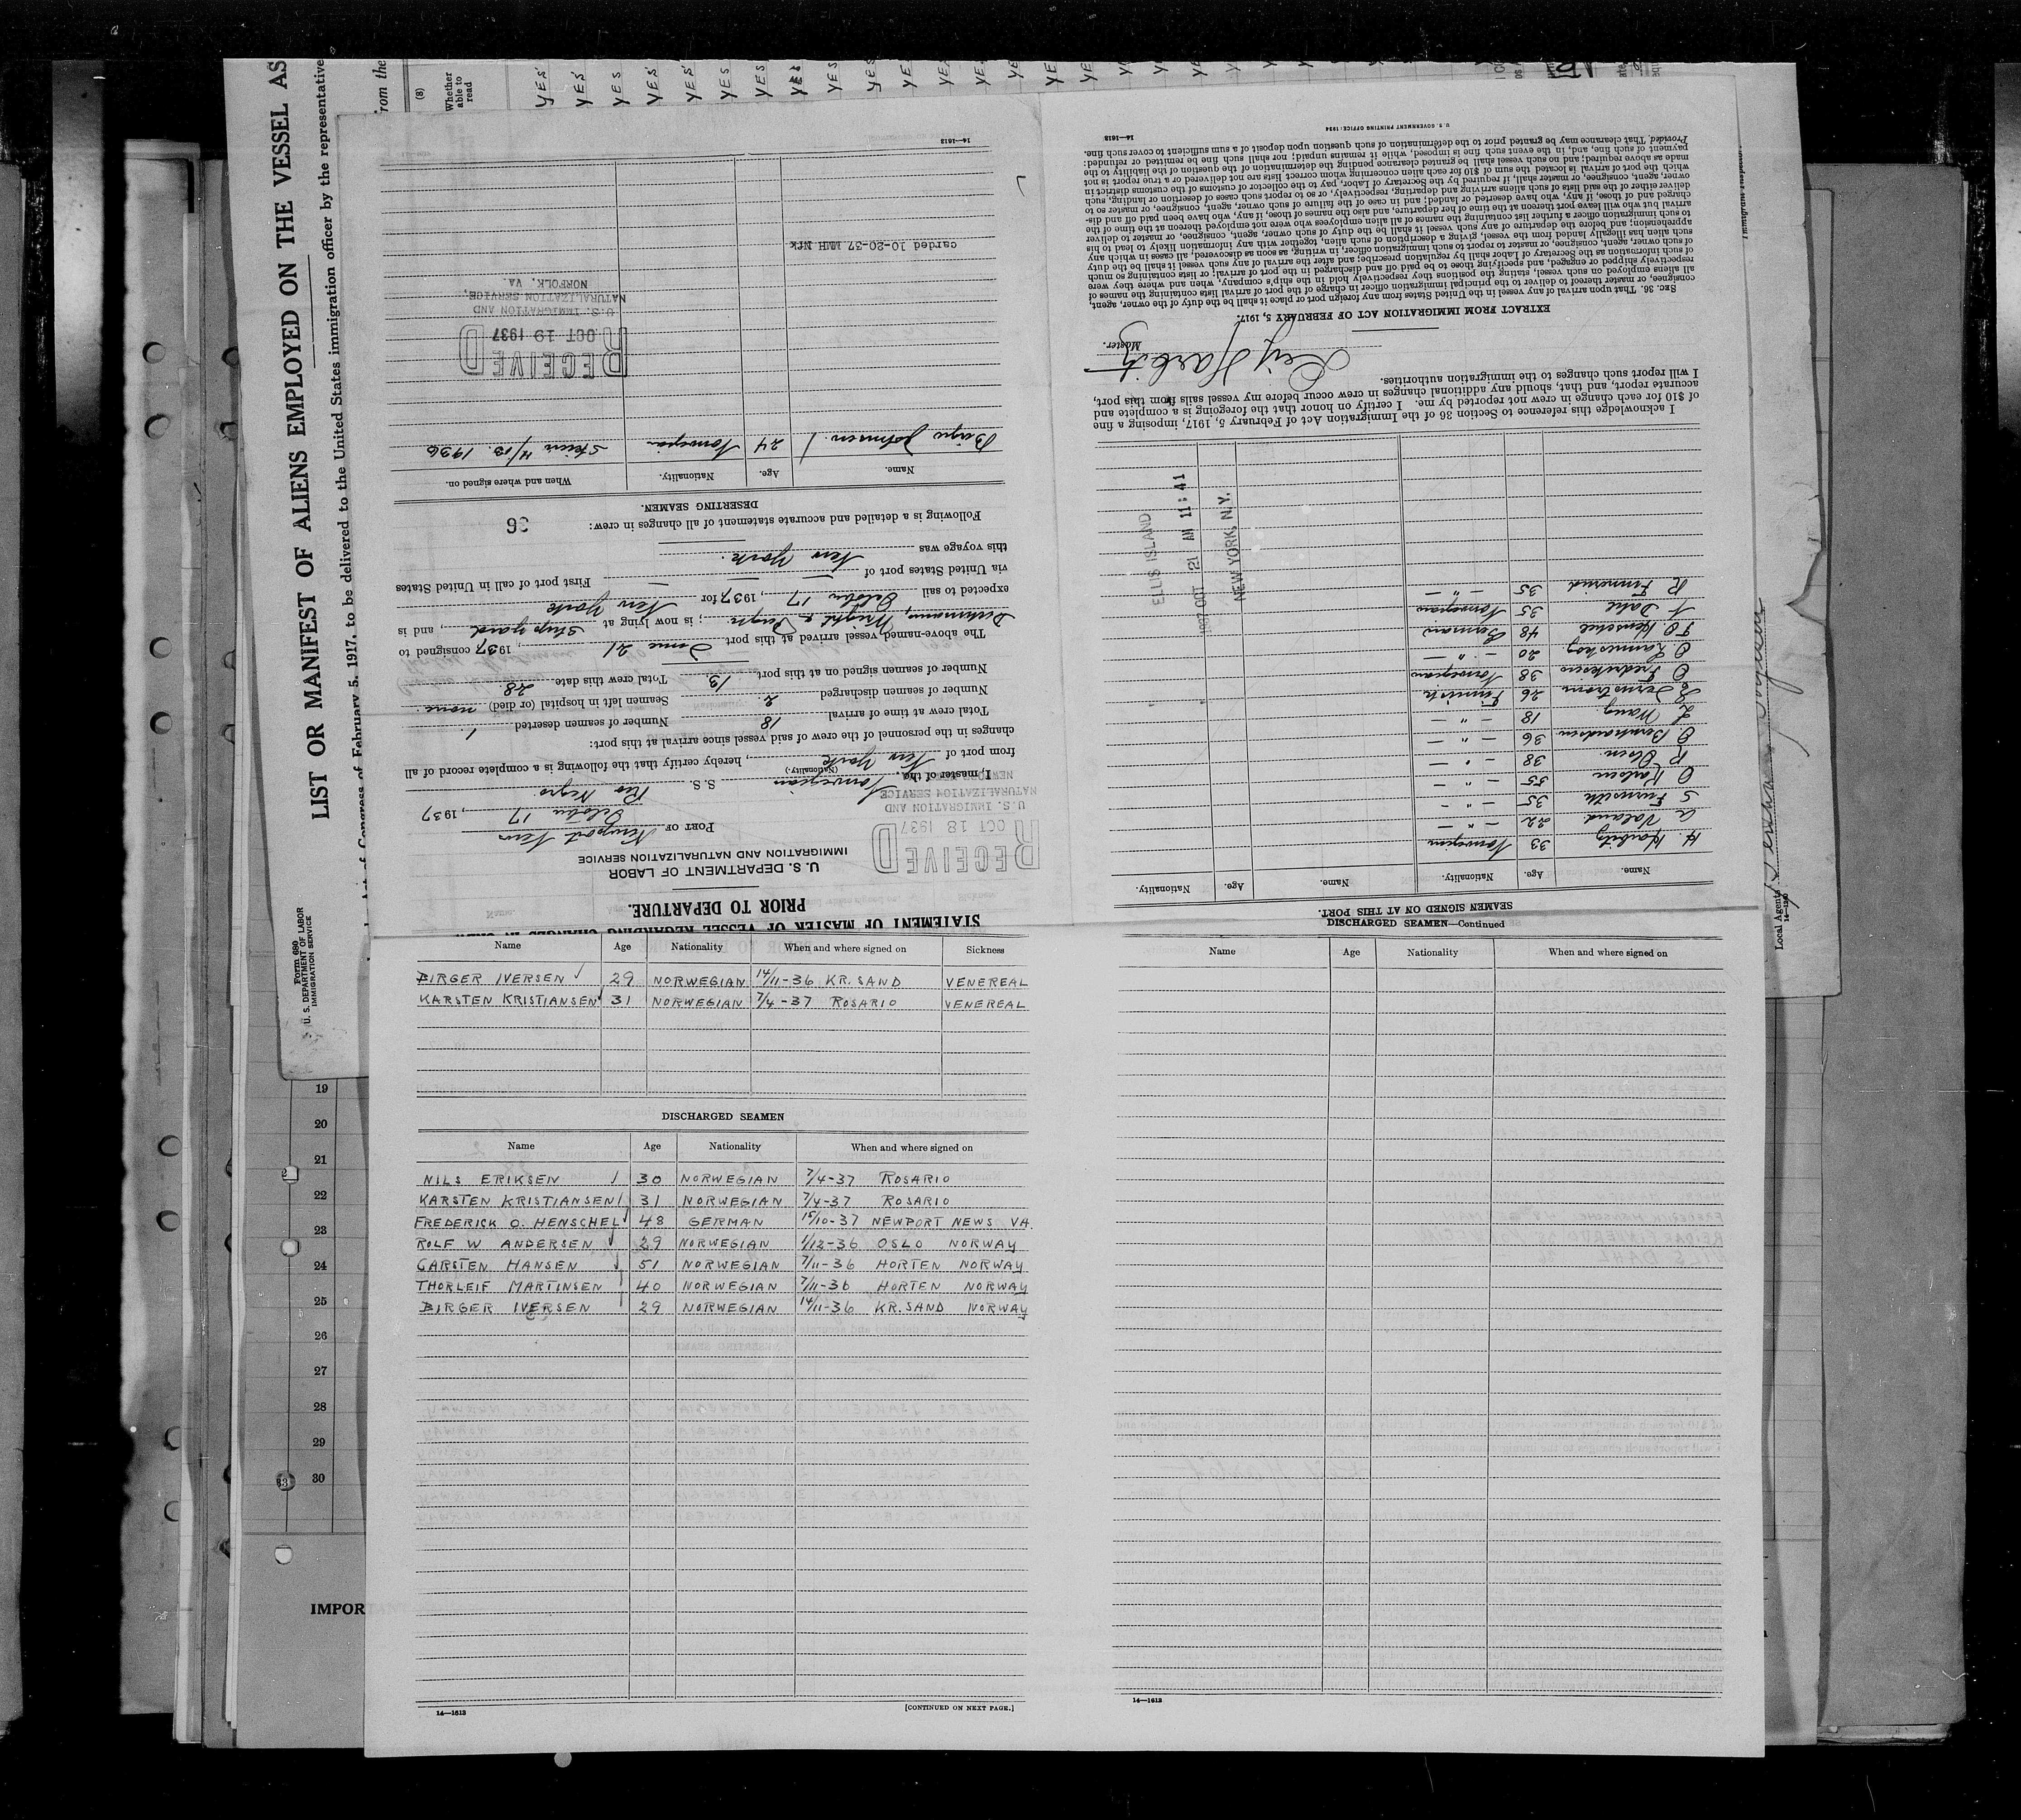 LIST OR MANIFEST OF ALIENS EMPLOYED ON THE VESSEL AS
Act of Congress of February 5, 1917, to be delivered to the United States immigration officer by the representative
from the
(8)
Whether able to read
YES YES YES YES YES YES YES YES YES YES YES
Form 680
U. S. DEPARTMENT OF LABOR
IMMIGRATION SERVICE
STATEMENT OF MASTER OF VESSEL REGARDING CHANGES IN CREW
PRIOR TO DEPARTURE.
U. S. DEPARTMENT OF LABOR
IMMIGRATION AND NATURALIZATION SERVICE
RECEIVED
OCT 18 1937
U. S. IMMIGRATION AND
NATURALIZATION SERVICE
PORT OF Newport News
October 17, 1937
I, master of the Norwegian S. S. Rio Negro
(Nationality.)
from port of New York, hereby certify that the following is a complete record of all
changes in the personnel of the crew of said vessel since arrival at this port:
Total crew at time of arrival 18 Number of seamen deserted 1
Number of seamen discharged 2 Seamen left in hospital (or died) none.
Number of seamen signed on at this port 13 Total crew this date 28
The above-named vessel arrived at this port June 21, 1937, consigned to
Dichmann, Wright & Pugh; is now lying at Shipyard, and is
expected to sail October 17, 1937 for New York
via United States port of — — — First port of call in United States
this voyage was New York.
Following is a detailed and accurate statement of all changes in crew: 36
DESERTING SEAMEN.
Name. Age. Nationality. When and where signed on.
Birger Johnsen 24 Norwegian Skien 4/12. 1936
RECEIVED
OCT 19 1937
U. S. IMMIGRATION AND
NATURALIZATION SERVICE,
NORFOLK, VA.
carded 10-20-37 MMH Nfk
14—1613
SEAMEN SIGNED ON AT THIS PORT.
Name. Age. Nationality. Name. Age. Nationality.
H. Harbitz 33 Norwegian
A Valand 22 — " —
S Furuseth 35 — " —
O Karlsen 55 — " —
R Olsen 38 — " —
O. Bernhardsen 36 — " —
L Wang 18 — " —
26 Finnish
O Fredriksen 38 Norwegian
O 20 — " —
F O Henschel 48 German
N Dahl 35 Norwegian
R Finnerud 35 — " —
ELLIS ISLAND
1937 OCT 21 AM 11:41
NEW YORK, N.Y.
I acknowledge this reference to Section 36 of the Immigration Act of February 5, 1917, imposing a fine
of $10 for each change in crew not reported by me. I certify on honor that the foregoing is a complete and
accurate report, and that, should any additional changes in crew occur before my vessel sails from this port,
I will report such changes to the immigration authorities.
Leif Harbitz
Master.
EXTRACT FROM IMMIGRATION ACT OF FEBRUARY 5, 1917.
SEC. 36. That upon arrival of any vessel in the United States from any foreign port or place it shall be the duty of the owner, agent,
consignee, or master thereof to deliver to the principal immigration officer in charge of the port of arrival lists containing the names of
all aliens employed on such vessel, stating the positions they respectively hold in the ship's company, when and where they were
respectively shipped or engaged, and specifying those to be paid off and discharged in the port of arrival; or lists containing so much
of such information as the Secretary of Labor shall by regulation prescribe; and after the arrival of any such vessel it shall be the duty
of such owner, agent, consignee, or master to report to such immigration officer, in writing, as soon as discovered, all cases in which any
such alien has illegally landed from the vessel, giving a description of such alien, together with any information likely to lead to his
apprehension; and before the departure of any such vessel it shall be the duty of such owner, agent, consignee, or master to deliver
to such immigration officer a further list containing the names of all alien employees who were not employed thereon at the time of the
arrival but who will leave port thereon at the time of her departure, and also the names of those, if any, who have been paid off and dis-
charged and of those, if any, who have deserted or landed; and in case of the failure of such owner, agent, consignee, or master so to
deliver either of the said lists of such aliens arriving and departing, respectively, or so to report such cases of desertion or landing, such
owner, agent, consignee, or master shall, if required by the Secretary of Labor, pay to the collector of customs of the customs district in
which the port of arrival is located the sum of $10 for each alien concerning whom correct lists are not delivered or a true report is not
made as above required; and no such vessel shall be granted clearance pending the determination of the question of the liability to the
payment of such fine, and, in the event such fine is imposed, while it remains unpaid; nor shall such fine be remitted or refunded:
Provided, That clearance may be granted prior to the determination of such question upon deposit of a sum sufficient to cover such fine.
14—1613
U. S. GOVERNMENT PRINTING OFFICE: 1934
Local Agents
14—1240
Name Age Nationality When and where signed on Sickness
BIRGER IVERSEN 29 NORWEGIAN 14/11-36 KR. SAND VENEREAL
KARSTEN KRISTIANSEN 31 NORWEGIAN 7/4-37 ROSARIO VENEREAL
DISCHARGED SEAMEN
Name Age Nationality When and where signed on
NILS ERIKSEN 30 NORWEGIAN 7/4-37 ROSARIO
KARSTEN KRISTIANSEN 31 NORWEGIAN 7/4-37 ROSARIO
FREDERICK O. HENSCHEL 48 GERMAN 15/10-37 NEWPORT NEWS VA.
ROLF W ANDERSEN 29 NORWEGIAN 1/12-36 OSLO NORWAY
CARSTEN HANSEN 51 NORWEGIAN 7/11-36 HORTEN NORWAY
THORLEIF MARTINSEN 40 NORWEGIAN 7/11-36 HORTEN NORWAY
BIRGER IVERSEN 29 NORWEGIAN 14/11-36 KR. SAND NORWAY
14—1613
[CONTINUED ON NEXT PAGE.]
DISCHARGED SEAMEN—Continued
Name Age Nationality When and where signed on
14—1613
19
20
21
22
23
24
25
26
27
28
29
30
IMPOR